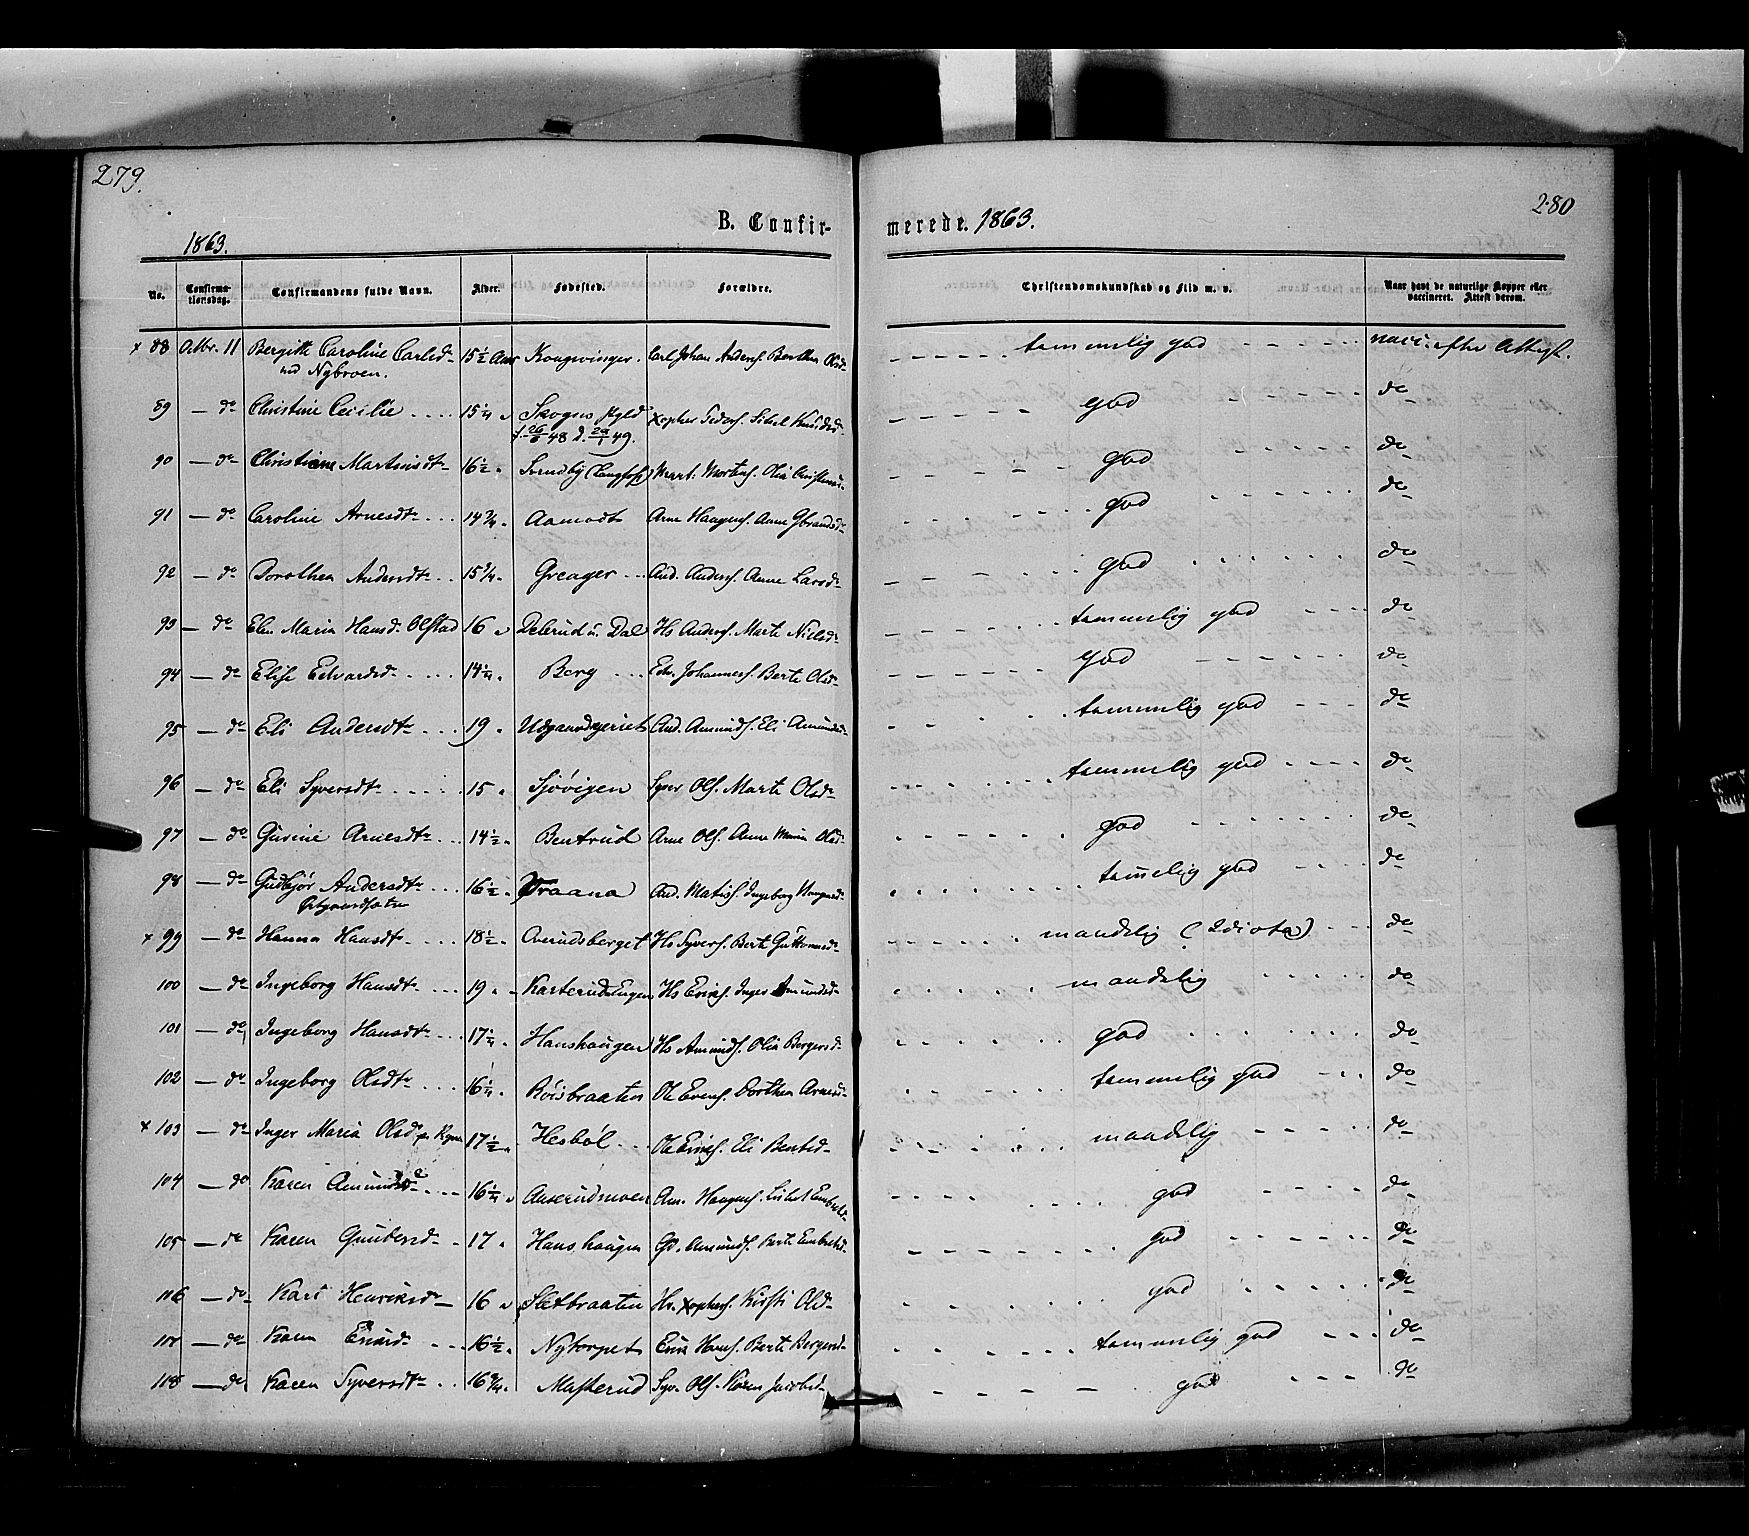 279.
280
B. Confir-
merede. 1863.
1863.
No. Confirmationsdag. Confirmandens fulde Navn. Alder. Fødested. Forældre. Christendomskundskab og Flid m. v. Naar havt de naturlige Kopper eller vaccineret. Attest derom.
x 88 Octbr. 11 Bergitte Caroline Carlsdr 15½ Aar Kongsvinger. Carl Johan Anders. Berthea Olsd. temmelig god vacc. efter Attest.
ned Nybroen.
89 — do Christine Cecilie 15¼ " Skognes Xopher Peders. Sibel Knudsd. god do
f. 26/6 48 d. 29/1 49.
90 — do Christiane Martinsdtr 16½ " Svendby Mart. Mortens. Olia god do
91 — do Caroline Arnesdtr 14¾ " Aamodt Arne Haagens. Anne Gbrandsd. god do
92 — do Dorothea Andersdtr 15¼ " Greager And. Anders. Anne Larsd. god do
93 — do Elen Maria Hansd. Olstad 16 " Delerud u. Dal Hs Anders. Marte Nielsd. temmelig god do
94 — do Elise Edvardsd. 14¼ " Berg Edv. Johanness. Berte Olsd. god do
95 — do Eli Andersdtr 19 " And. Amunds. Eli Amundsd. temmelig god do
96 — do Eli Syversdtr 15 " Sjøvigen Syver Ols. Marte Olsd. temmelig god do
97 — do Gurine Arnesdtr 14½ " Bentrud Arne Ols. Anne Maria Olsd. god do
98 — do Gudbjør Andersdtr 16½ " Vraana And. Matis. Ingeborg Haagensd. temelig god do
x 99 — do Hanna Hansdtr 18½ " Overudsberget Hs Syvers. Berte Guttormsd. maadelig (Idiota) do
100 — do Ingeborg Hansdtr 19 " KarterudsEngen Hs Erichs. Inger Amundsd. maadelig do
101 — do Ingeborg Hansdtr 17¼ " Hanshaugen Hs Amunds. Olia Bergersd. god do
102 — do Ingeborg Olsdtr 16¼ " Röisbraaten Ole Evens. Dorthea Arnesd. temmelig god do
x 103 — do Inger Maria Olsd. 17½ " Hesböl Ole Erichs. Eli Bentsd. maadelig do
104 — do Karen Amundsd. 16¼ " Auserudmoen Am. Haagens. Lisbet Embretsd. god do
105 — do Karen Gundersd. 17 " Hanshaugen Gd. Amunds. Berte Embretsd. god do
106 — do Kari Henriksd. 16 " Sletbraaten Hr. Xophers. Kirsti Olsd. god do
107 — do Karen Ericsd. 16½ " Nytorpet Eric Hans. Berte Bergersd. temmelig god do
108 — do Karen Syversdtr 16¾ " Masterud Syv. Ols. Karen Jacobsd. god do